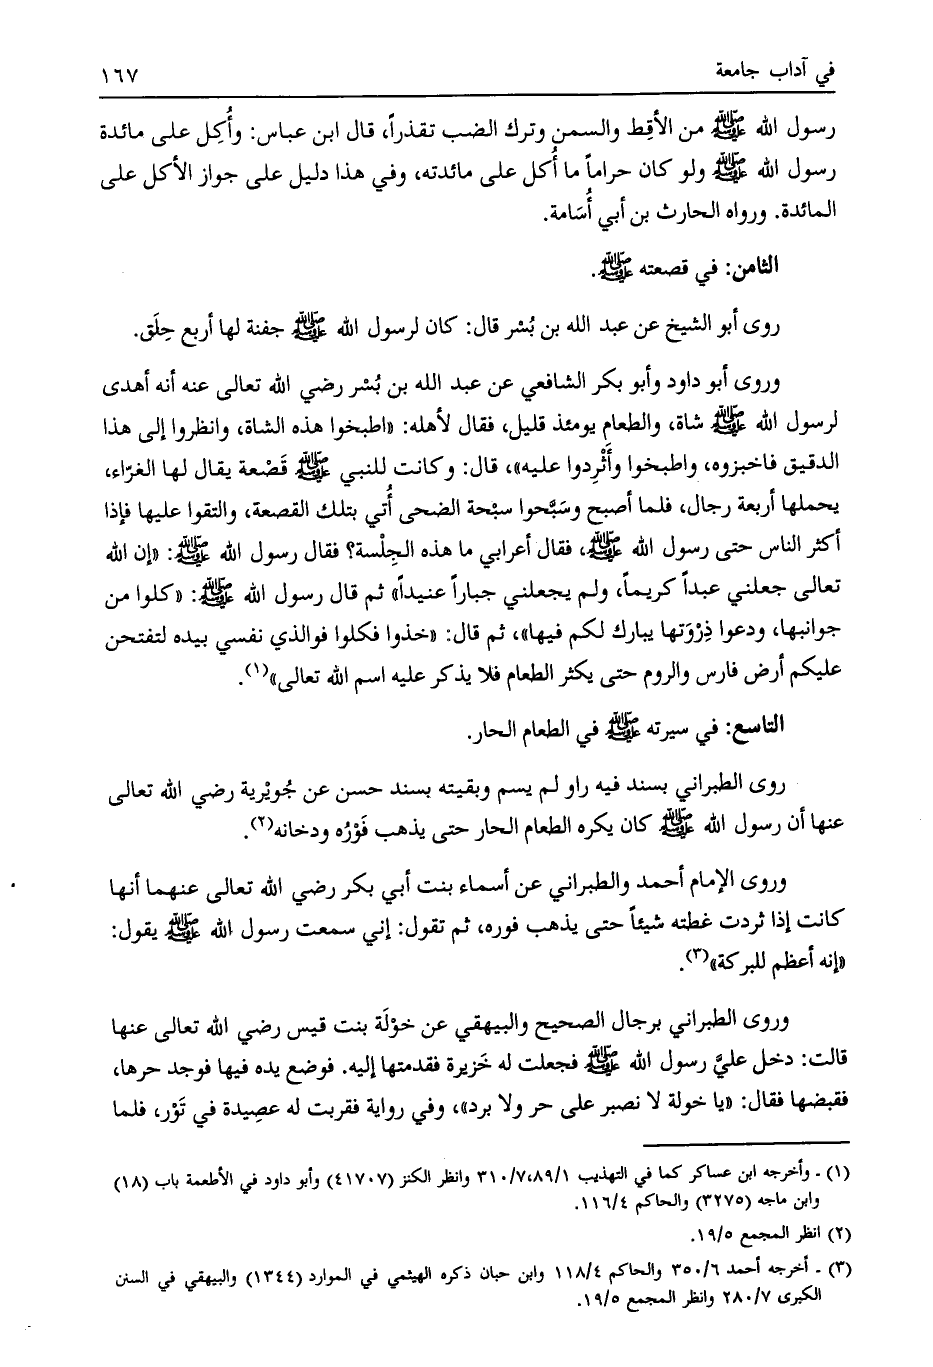 في آداب جامعة ١٦٧
رسول الله ﷺ من الأقِط والسمن وترك الضب تقذراً، قال ابن عباس: وأُكِل على مائدة
رسول الله ﷺ ولو كان حراماً ما أُكل على مائدته، وفي هذا دليل على جواز الأكل على
المائدة. ورواه الحارث بن أبي أُسَامة.
الثامن: في قصعته ﷺ.
روى أبو الشيخ عن عبد الله بن بُسْر قال: كان لرسول الله ﷺ جفنة لها أربع حِلَق.
وروى أبو داود وأبو بكر الشافعي عن عبد الله بن بُسْر رضي الله تعالى عنه أنه أهدى
لرسول الله ﷺ شاة، والطعام يومئذ قليل، فقال لأهله: «اطبخوا هذه الشاة، وانظروا إلى هذا
الدقيق فاخبزوه، واطبخوا وأَثْرِدوا عليه»، قال: وكانت للنبي ﷺ قَصْعة يقال لها الغرّاء،
يحملها أربعة رجال، فلما أصبح وسَبَّحوا سبْحة الضحى أُتي بتلك القصعة، والتقوا عليها فإذا
أكثر الناس حتى رسول الله ﷺ، فقال أعرابي ما هذه الجِلْسة؟ فقال رسول الله ﷺ: «إن الله
تعالى جعلني عبداً كريماً، ولم يجعلني جباراً عنيداً» ثم قال رسول الله ﷺ: «كلوا من
جوانبها، ودعوا ذِرْوَتها يبارك لكم فيها»، ثم قال: «خذوا فكلوا فوالذي نفسي بيده لتفتحن
عليكم أرض فارس والروم حتى يكثر الطعام فلا يذكر عليه اسم الله تعالى»(١).
التاسع: في سيرته ﷺ في الطعام الحار.
روى الطبراني بسند فيه راو لم يسم وبقيته بسند حسن عن جُويْرية رضي الله تعالى
عنها أن رسول الله ﷺ كان يكره الطعام الحار حتى يذهب فَوْرُه ودخانه(٢).
وروى الإمام أحمد والطبراني عن أسماء بنت أبي بكر رضي الله تعالى عنهما أنها
كانت إذا ثردت غطته شيئاً حتى يذهب فوره، ثم تقول: إني سمعت رسول الله ﷺ يقول:
«إنه أعظم للبركة»(٣).
وروى الطبراني برجال الصحيح والبيهقي عن خوْلَة بنت قيس رضي الله تعالى عنها
قالت: دخل عليَّ رسول الله ﷺ فجعلت له خَزيرة فقدمتها إليه. فوضع يده فيها فوجد حرها،
فقبضها فقال: «يا خولة لا نصبر على حر ولا برد»، وفي رواية فقربت له عصِيدة في تَوْر، فلما
(١) ـ وأخرجه ابن عساكر كما في التهذيب ٣١٠/٧،٨٩/١ وانظر الكنز (٤١٧٠٧) وأبو داود في الأطعمة باب (١٨)
وابن ماجه (٣٢٧٥) والحاكم ١١٦/٤.
(٢) انظر المجمع ١٩/٥.
(٣) ـ أخرجه أحمد ٣٥٠/٦ والحاكم ١١٨/٤ وابن حبان ذكره الهيثمي في الموارد (١٣٤٤) والبيهقي في السنن
الكبرى ٢٨٠/٧ وانظر المجمع ١٩/٥.